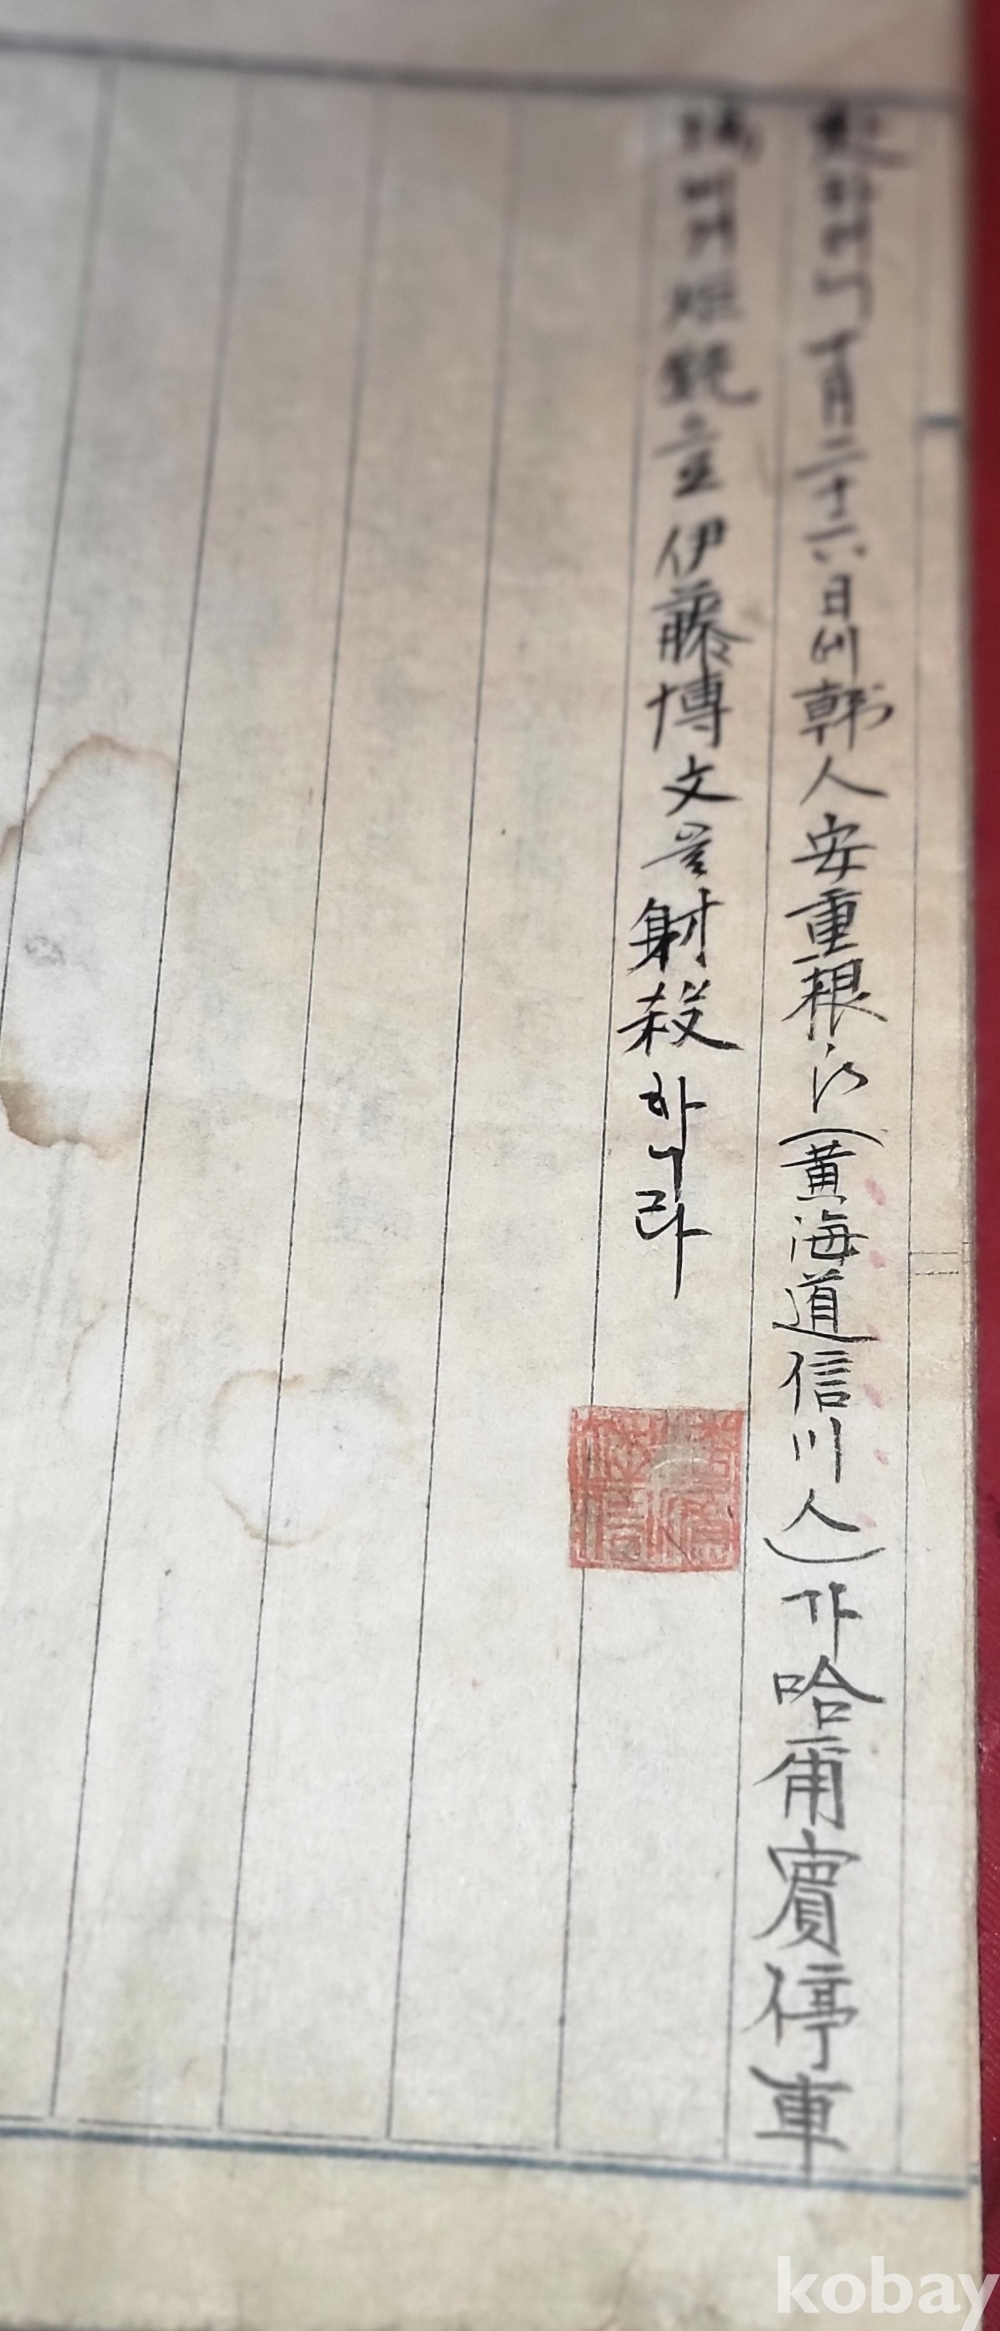 十月二十六日에韓人安重根氏(黃海道信川人)가哈爾賓停車
場에서短銃으로伊藤博文을射殺하니라
kobay